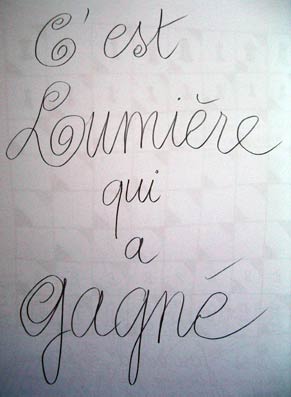 C'est
Lumière
qui
a
gagné